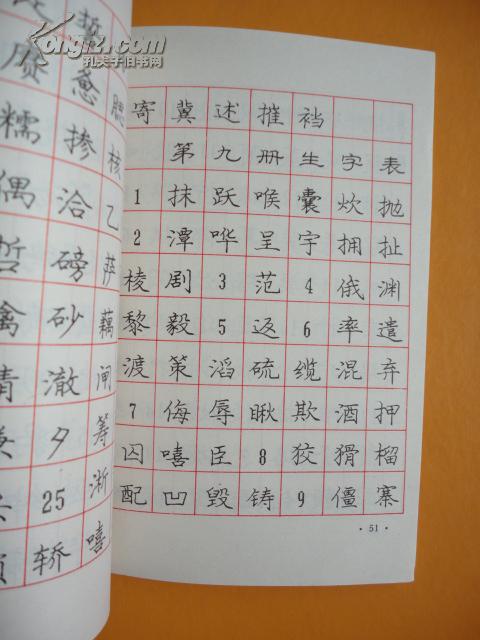 Kongfz.com
孔夫子旧书网
赝 惫 腮
糯 掺 核
偶 洽 乙
哲 磅 萨
禽 砂 藕
澈 闸
夕 筹
25 淅
轿 嘻
寄 冀 述 摧 裆
第 九 册 生 字 表
1 抹 跃 喉 囊 炊 抛
2 潭 哗 呈 宇 拥 扯
棱 剧 3 范 4 俄 渊
黎 毅 5 返 6 率 遣
渡 策 滔 硫 缆 混 弃
7 侮 辱 瞅 欺 酒 押
囚 嘻 臣 8 狡 猾 榴
配 凹 毁 铸 9 僵 寨
· 51 ·